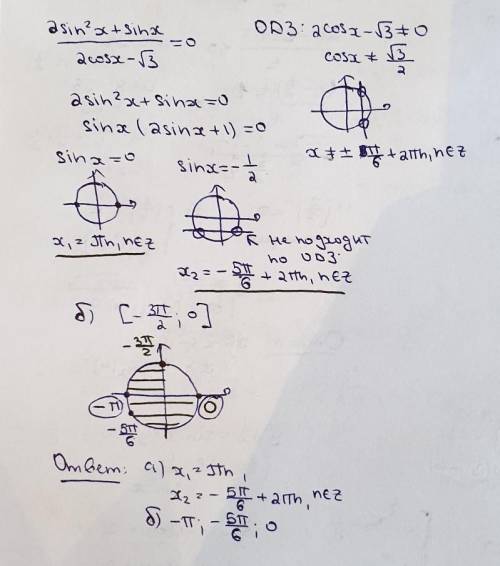 (2sin²x + sinx)/(2cosx - √3) = 0
ОДЗ: 2cosx - √3 ≠ 0
cosx ≠ √3/2
x ≠ ± π/6 + 2πn, n∈Z
2sin²x + sinx = 0
sinx (2sinx + 1) = 0
sinx = 0
x₁ = πn, n∈Z
sinx = -1/2
не подходит
по ОДЗ.
x₂ = -5π/6 + 2πn, n∈Z
б) [-3π/2; 0]
-3π/2
-π
0
-5π/6
Ответ: а) x₁ = πn,
x₂ = -5π/6 + 2πn, n∈Z
б) -π; -5π/6; 0